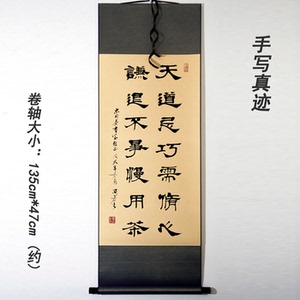 手写真迹
天道忌巧需脩心
謙退不爭慢用茶
卷轴大小：135cm*47cm（约）